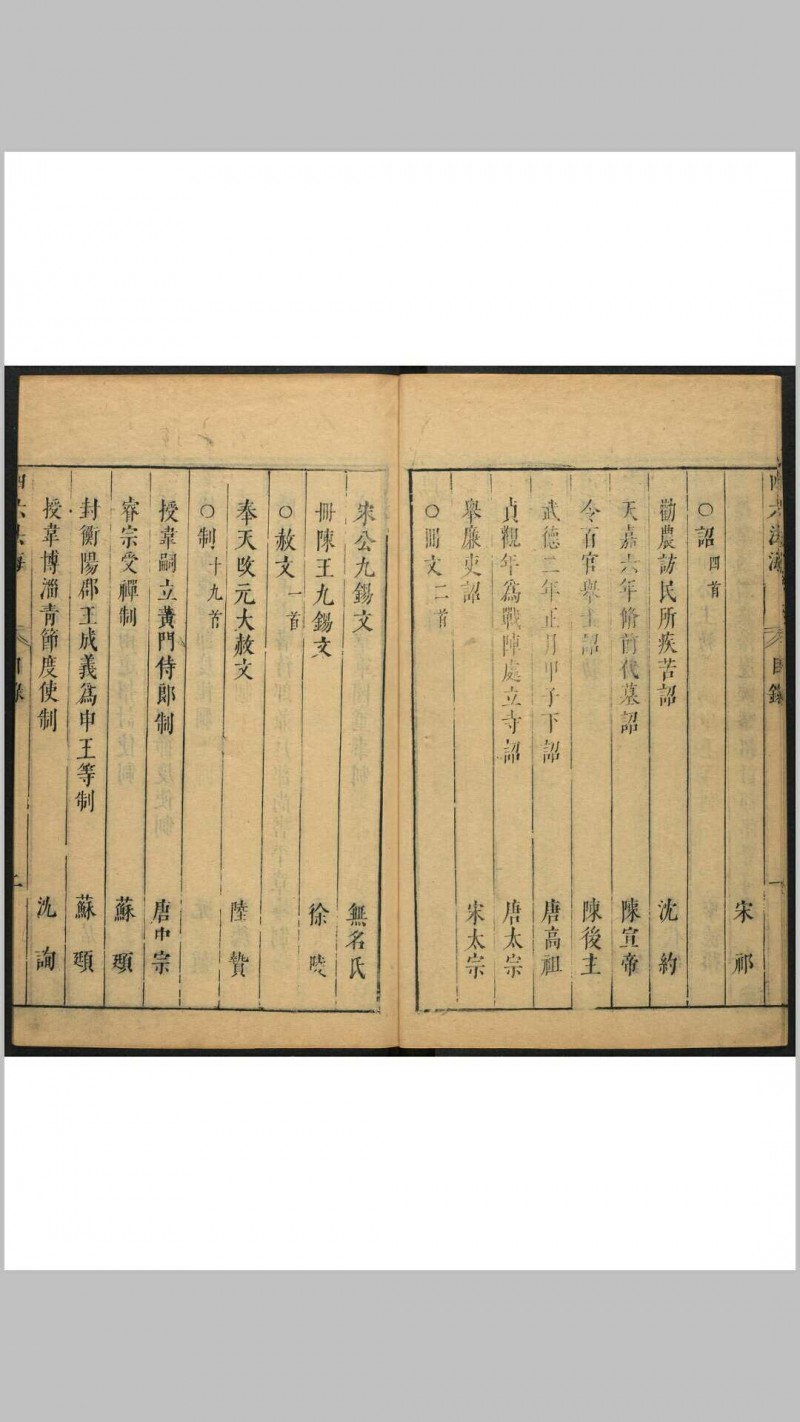 宋祁
○詔四首
勸農訪民所疾苦詔 沈約
天嘉六年脩前代墓詔 陳宣帝
令百官舉士詔 陳後主
武德二年正月甲子下詔 唐高祖
貞觀年爲戰陣處立寺詔 唐太宗
舉廉吏詔 宋太宗
○冊文二首
宋公九錫文 無名氏
冊陳王九錫文 徐陵
○赦文一首
奉天改元大赦文 陸贄
○制十九首
授韋嗣立黃門侍郎制 唐中宗
睿宗受禪制 蘇頲
封衡陽郡王成義爲申王等制 蘇頲
授韋博淄青節度使制 沈詢
四六法海 目錄 二